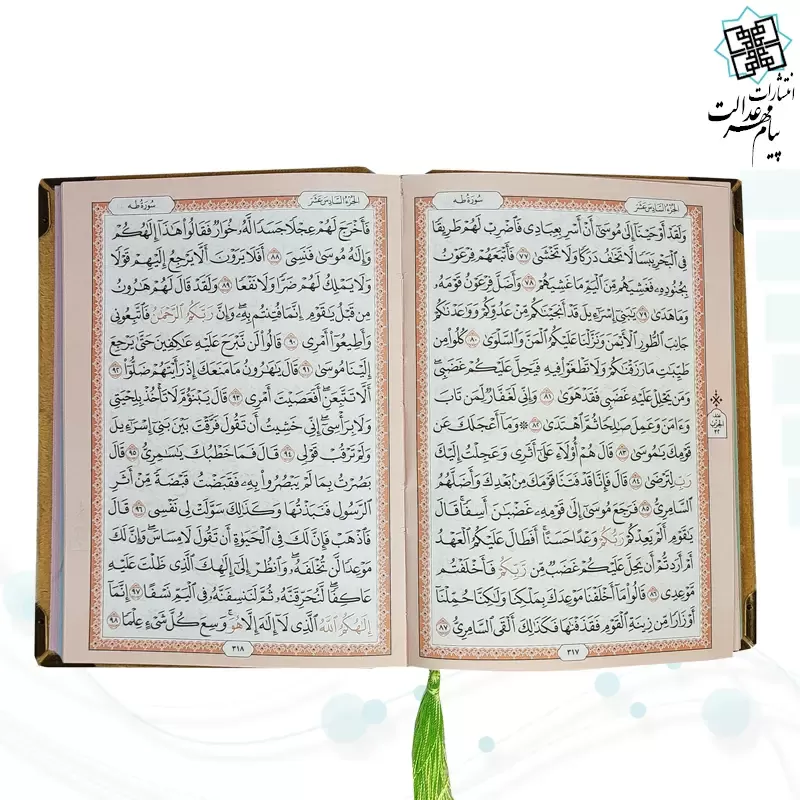 انتشارات
پیام مهر عدالت
الجزء السادس عشر
سورة طه
وَلَقَدْ أَوْحَيْنَا إِلَىٰ مُوسَىٰ أَنْ أَسْرِ بِعِبَادِى فَاضْرِبْ لَهُمْ طَرِيقًا
فِى الْبَحْرِ يَبَسًا لَا تَخَافُ دَرَكًا وَلَا تَخْشَىٰ ٧٧ فَأَتْبَعَهُمْ فِرْعَوْنُ
بِجُنُودِهِ فَغَشِيَهُمْ مِنَ الْيَمِّ مَا غَشِيَهُمْ ٧٨ وَأَضَلَّ فِرْعَوْنُ قَوْمَهُ
وَمَا هَدَىٰ ٧٩ يَٰبَنِى إِسْرَٰٓءِيلَ قَدْ أَنْجَيْنَٰكُمْ مِنْ عَدُوِّكُمْ وَوَٰعَدْنَٰكُمْ
جَانِبَ الطُّورِ الْأَيْمَنَ وَنَزَّلْنَا عَلَيْكُمُ الْمَنَّ وَالسَّلْوَىٰ ٨٠ كُلُوا مِنْ
طَيِّبَٰتِ مَا رَزَقْنَٰكُمْ وَلَا تَطْغَوْا فِيهِ فَيَحِلَّ عَلَيْكُمْ غَضَبِى
وَمَنْ يَحْلِلْ عَلَيْهِ غَضَبِى فَقَدْ هَوَىٰ ٨١ وَإِنِّى لَغَفَّارٌ لِمَنْ تَابَ
وَءَامَنَ وَعَمِلَ صَٰلِحًا ثُمَّ اهْتَدَىٰ ٨٢ ۞ وَمَا أَعْجَلَكَ عَنْ
قَوْمِكَ يَٰمُوسَىٰ ٨٣ قَالَ هُمْ أُولَاءِ عَلَىٰ أَثَرِى وَعَجِلْتُ إِلَيْكَ
رَبِّ لِتَرْضَىٰ ٨٤ قَالَ فَإِنَّا قَدْ فَتَنَّا قَوْمَكَ مِنْ بَعْدِكَ وَأَضَلَّهُمُ
السَّامِرِىُّ ٨٥ فَرَجَعَ مُوسَىٰ إِلَىٰ قَوْمِهِ غَضْبَٰنَ أَسِفًا قَالَ
يَٰقَوْمِ أَلَمْ يَعِدْكُمْ رَبُّكُمْ وَعْدًا حَسَنًا أَفَطَالَ عَلَيْكُمُ الْعَهْدُ
أَمْ أَرَدْتُمْ أَنْ يَحِلَّ عَلَيْكُمْ غَضَبٌ مِنْ رَبِّكُمْ فَأَخْلَفْتُمْ
مَوْعِدِى ٨٦ قَالُوا مَا أَخْلَفْنَا مَوْعِدَكَ بِمَلْكِنَا وَلَٰكِنَّا حُمِّلْنَا
أَوْزَارًا مِنْ زِينَةِ الْقَوْمِ فَقَذَفْنَٰهَا فَكَذَٰلِكَ أَلْقَى السَّامِرِىُّ ٨٧
٣١٧
الجزء السادس عشر
سورة طه
فَأَخْرَجَ لَهُمْ عِجْلًا جَسَدًا لَهُ خُوَارٌ فَقَالُوا هَٰذَا إِلَٰهُكُمْ
وَإِلَٰهُ مُوسَىٰ فَنَسِىَ ٨٨ أَفَلَا يَرَوْنَ أَلَّا يَرْجِعُ إِلَيْهِمْ قَوْلًا
وَلَا يَمْلِكُ لَهُمْ ضَرًّا وَلَا نَفْعًا ٨٩ وَلَقَدْ قَالَ لَهُمْ هَٰرُونُ
مِنْ قَبْلُ يَٰقَوْمِ إِنَّمَا فُتِنْتُمْ بِهِ وَإِنَّ رَبَّكُمُ الرَّحْمَٰنُ فَاتَّبِعُونِى
وَأَطِيعُوا أَمْرِى ٩٠ قَالُوا لَنْ نَبْرَحَ عَلَيْهِ عَٰكِفِينَ حَتَّىٰ يَرْجِعَ
إِلَيْنَا مُوسَىٰ ٩١ قَالَ يَٰهَٰرُونُ مَا مَنَعَكَ إِذْ رَأَيْتَهُمْ ضَلُّوا ٩٢
أَلَّا تَتَّبِعَنِ أَفَعَصَيْتَ أَمْرِى ٩٣ قَالَ يَبْنَؤُمَّ لَا تَأْخُذْ بِلِحْيَتِى
وَلَا بِرَأْسِى إِنِّى خَشِيتُ أَنْ تَقُولَ فَرَّقْتَ بَيْنَ بَنِى إِسْرَٰٓءِيلَ
وَلَمْ تَرْقُبْ قَوْلِى ٩٤ قَالَ فَمَا خَطْبُكَ يَٰسَٰمِرِىُّ ٩٥ قَالَ
بَصُرْتُ بِمَا لَمْ يَبْصُرُوا بِهِ فَقَبَضْتُ قَبْضَةً مِنْ أَثَرِ
الرَّسُولِ فَنَبَذْتُهَا وَكَذَٰلِكَ سَوَّلَتْ لِى نَفْسِى ٩٦ قَالَ
فَاذْهَبْ فَإِنَّ لَكَ فِى الْحَيَوٰةِ أَنْ تَقُولَ لَا مِسَاسَ وَإِنَّ لَكَ
مَوْعِدًا لَنْ تُخْلَفَهُ وَانْظُرْ إِلَىٰ إِلَٰهِكَ الَّذِى ظَلْتَ عَلَيْهِ
عَاكِفًا لَنُحَرِّقَنَّهُ ثُمَّ لَنَنْسِفَنَّهُ فِى الْيَمِّ نَسْفًا ٩٧ إِنَّمَا
إِلَٰهُكُمُ اللَّهُ الَّذِى لَا إِلَٰهَ إِلَّا هُوَ وَسِعَ كُلَّ شَىْءٍ عِلْمًا ٩٨
٣١٨